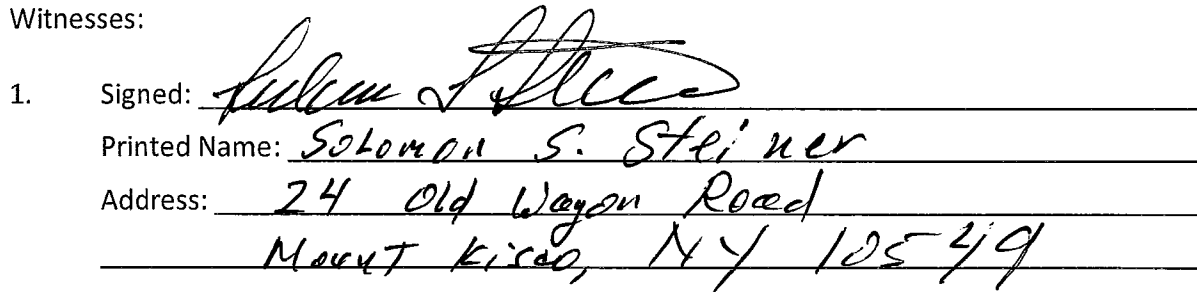 Witnesses:
1. Signed:
Printed Name: Solomon S. Steiner
Address: 24 Old Wagon Road
Mount Kisco, NY 10549